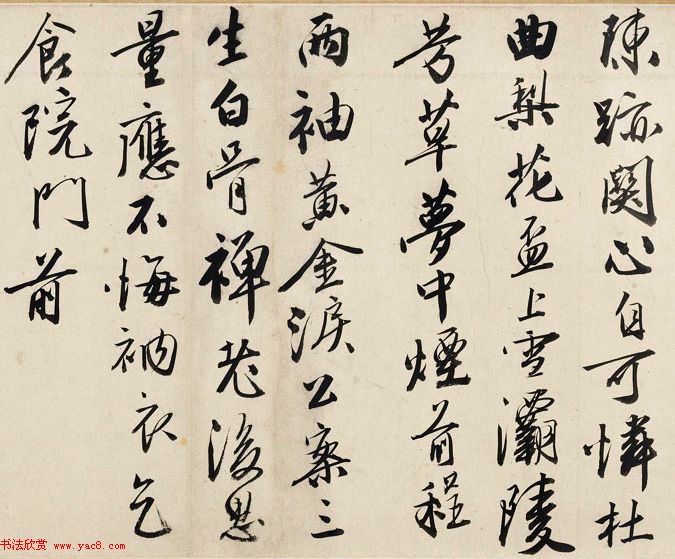 陳跡關心自可憐杜
曲梨花盃上雪灞陵
芳草夢中煙前程
兩袖黃金淚公案三
生白骨禪老後思
量應不悔衲衣乞
食院門前
书法欣赏
www.yac8.com